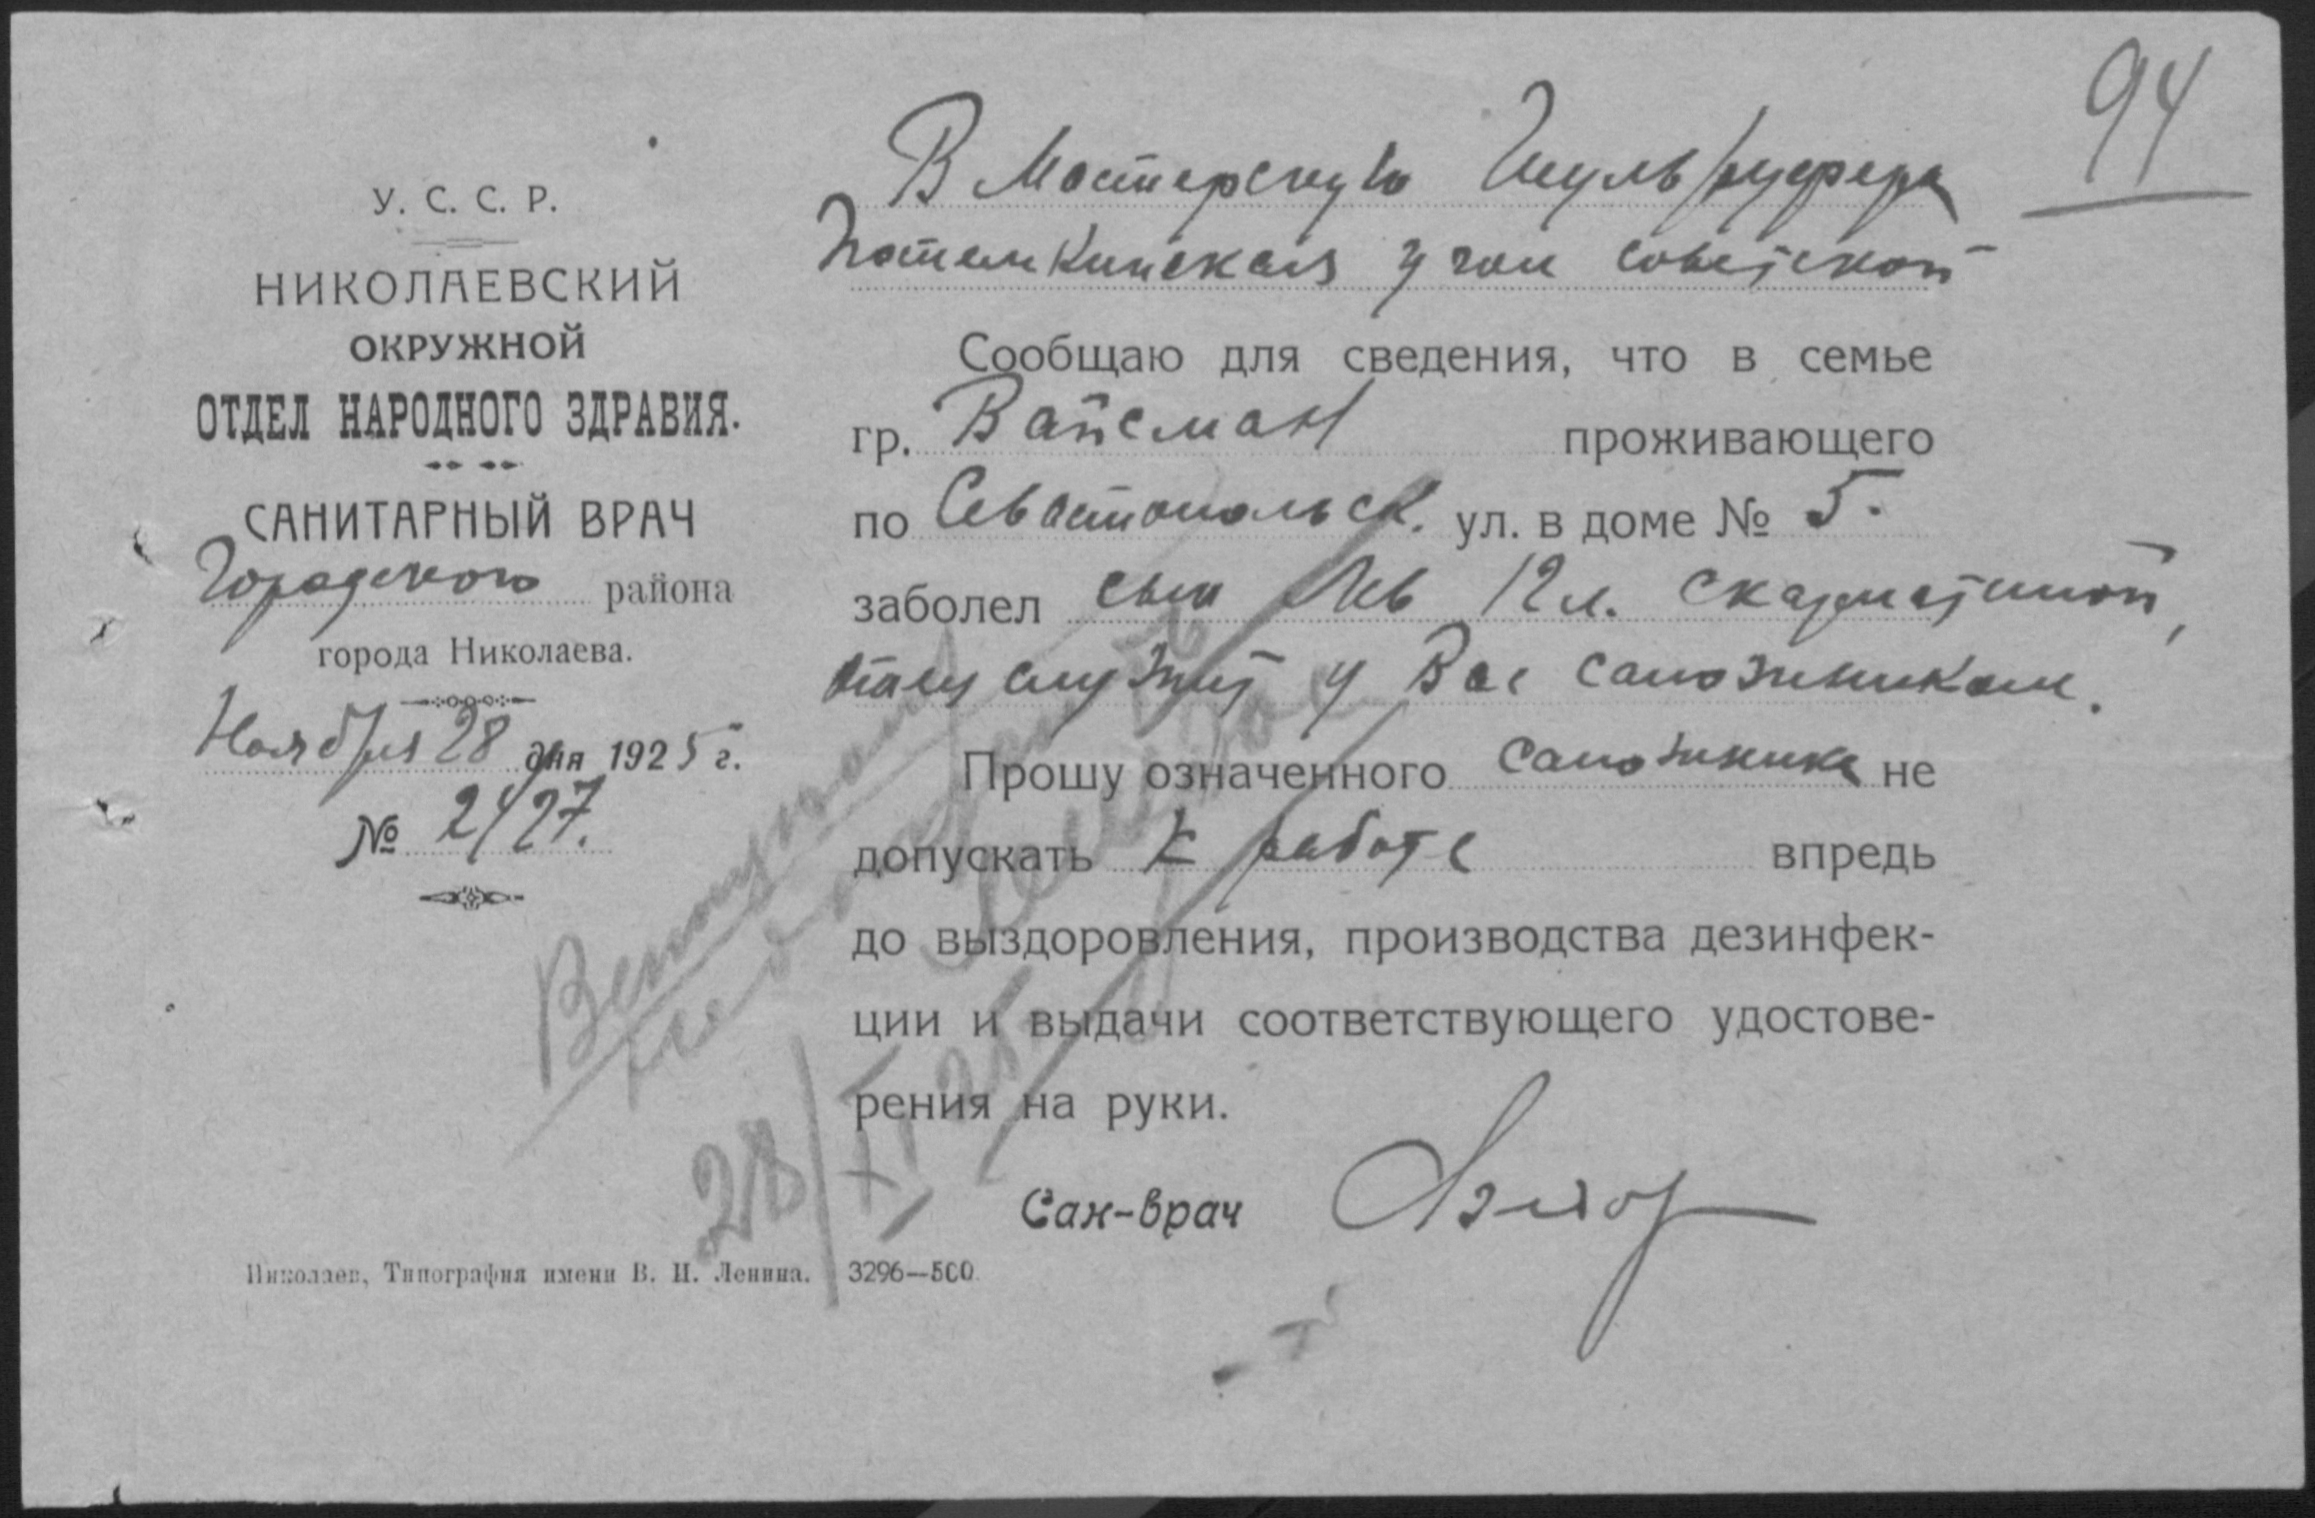 94
У. С. С. Р.
НИКОЛАЕВСКИЙ
ОКРУЖНОЙ
ОТДЕЛ НАРОДНОГО ЗДРАВИЯ.
САНИТАРНЫЙ ВРАЧ
Городского района
города Николаева.
Ноября 28 дня 1925 г.
№ 2427.
В Мастерскую
Потемкинская угол советской
Сообщаю для сведения, что в семье
гр. Вайсман проживающего
по Севастопольск. ул. в доме № 5.
заболел сын Лев 12 л. скарлатиной,
служит у Вас сапожником.
Прошу означенного сапожника не
допускать к работе впредь
до выздоровления, производства дезинфек-
ции и выдачи соответствующего удостове-
рения на руки.
Сан-врач
28/XI 25
Николаев, Типография имени В. И. Ленина. 3296—500